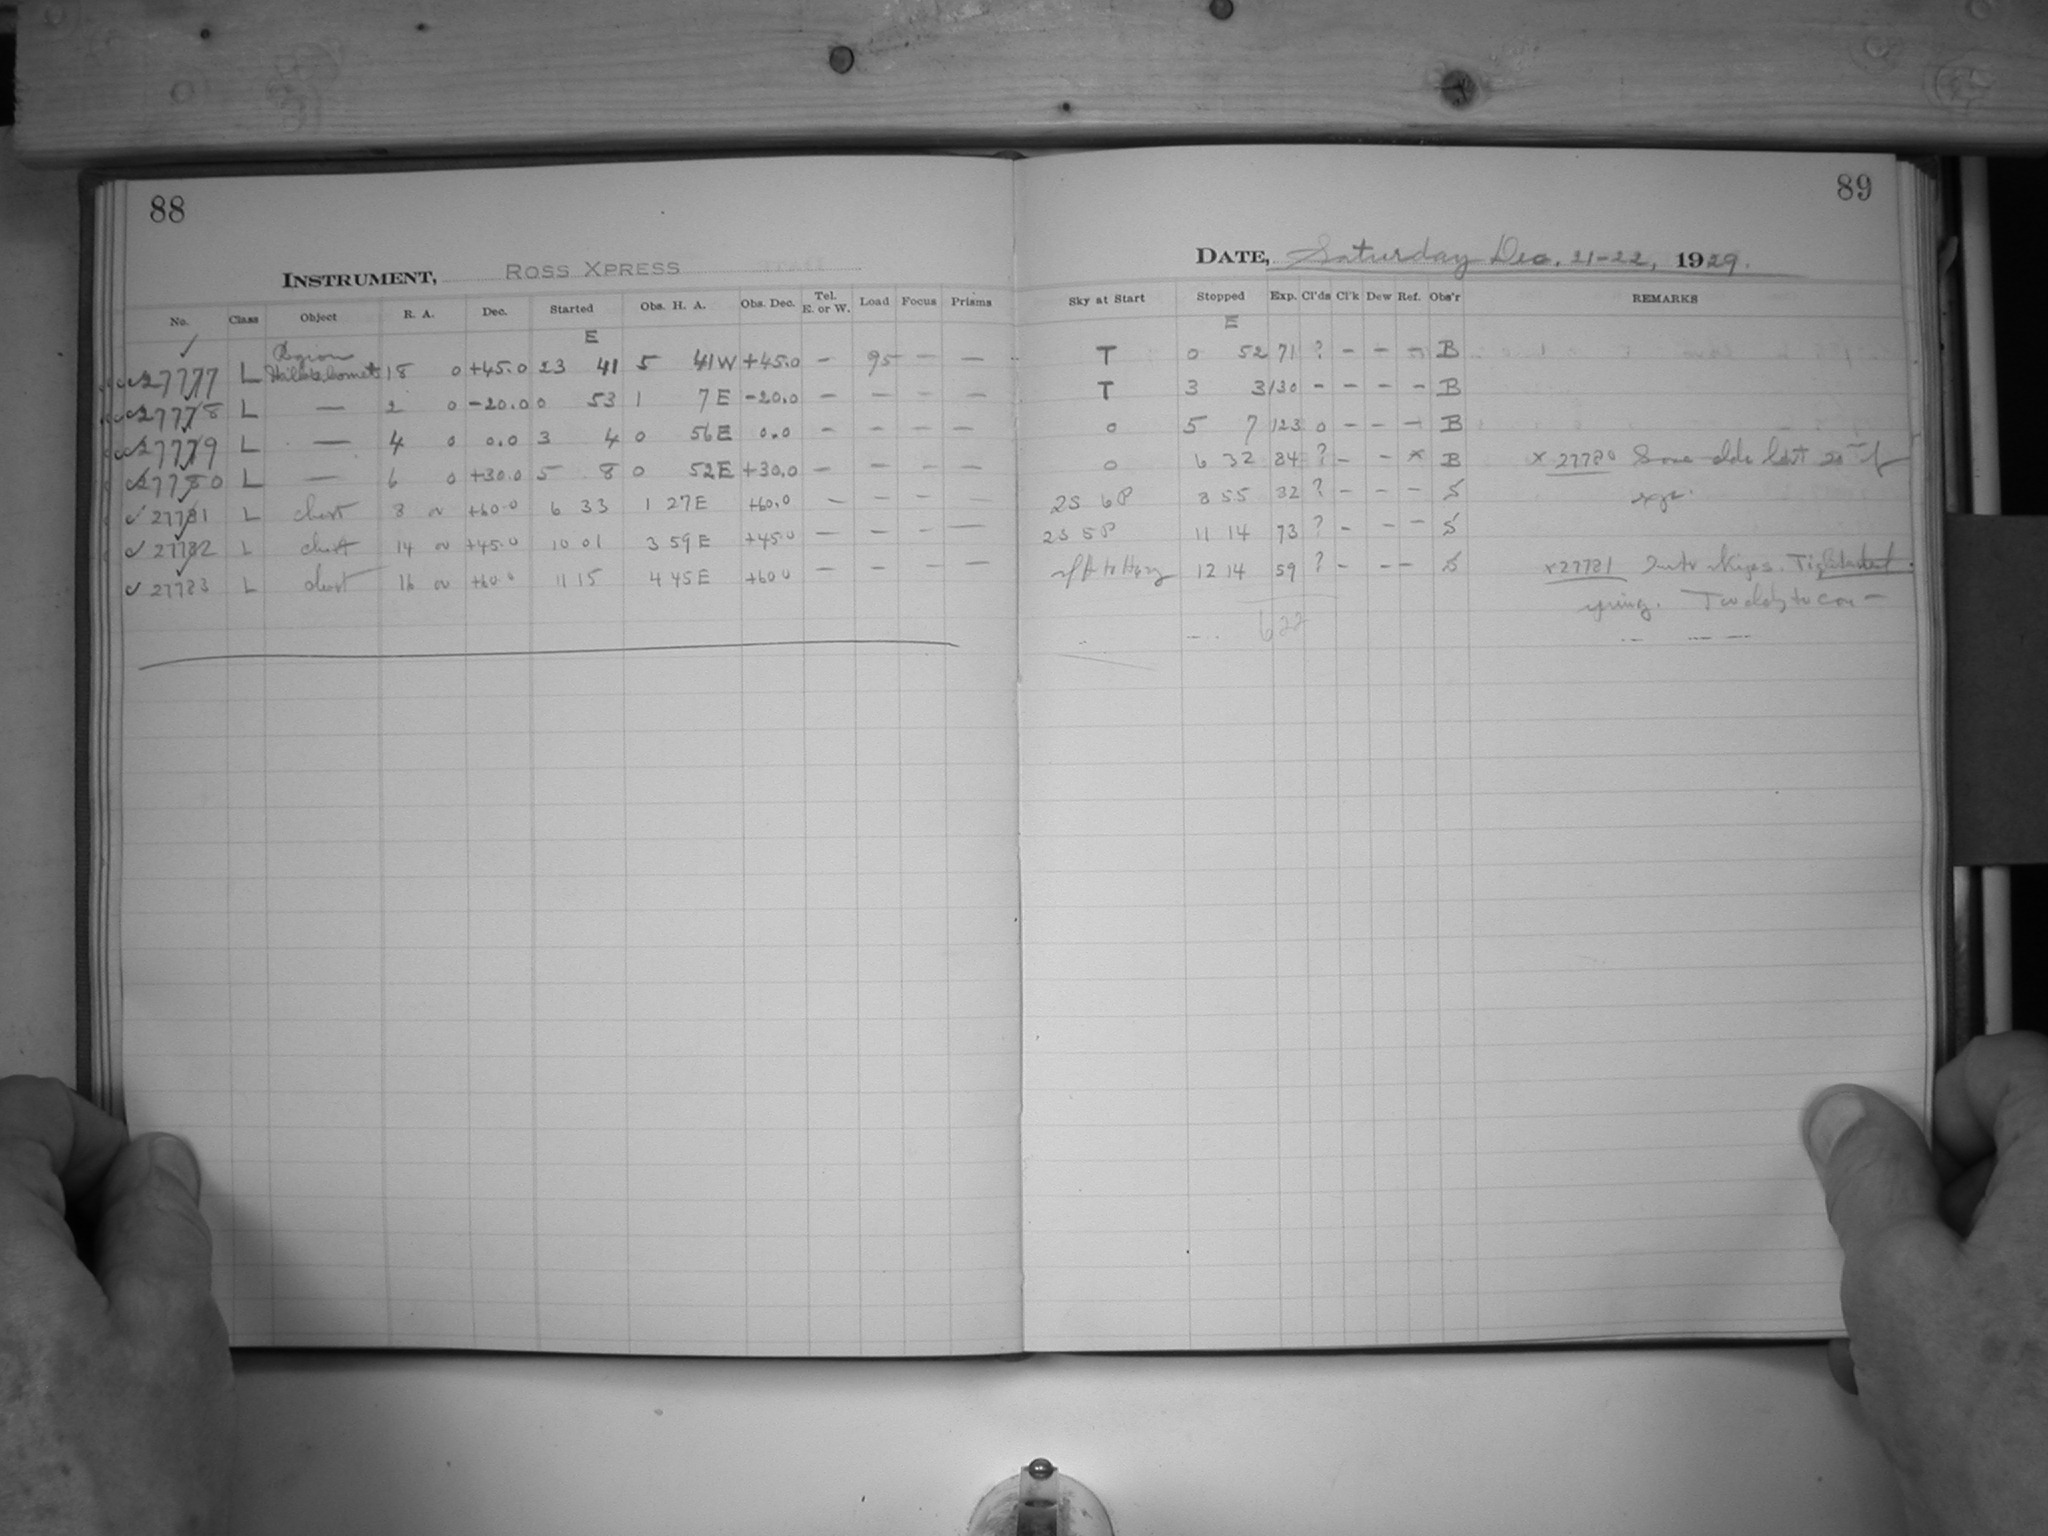 88
INSTRUMENT, ROSS XPRESS
No. Class Object R. A. Dec. Started Obs. H. A. Obs. Dec. Tel. E. or W. Load Focus Prisms
E
27777 L Region 18 0 +45.0 23 41 5 41W +45.0 — 95 — —
27778 L — 2 0 -20.0 0 53 1 7E -20.0 — — — —
27779 L — 4 0 0.0 3 4 0 56E 0.0 — — — —
27780 L — 6 0 +30.0 5 8 0 52E +30.0 — — — —
27781 L chart 8 +60.0 6 33 1 27E +60.0 — — — —
27782 L chart 14 +45.0 10 01 3 59E +45.0 — — — —
27783 L chart 16 +60.0 11 15 4 45E +60.0 — — — —
89
DATE, Saturday Dec. 21-22, 1929.
Sky at Start Stopped Exp. Cl'ds Cl'k Dew Ref. Obs'r REMARKS
E
T 0 52 71 ? – – – B
T 3 3 130 – – – – B
0 5 7 123 0 – – – B
0 6 32 84 ? – – x B x 27780 Some last 20 of
2S 6P 8 55 32 ? – – – S exp.
2S 5P 11 14 73 ? – – – S
12 14 59 ? – – – S x 27781
622